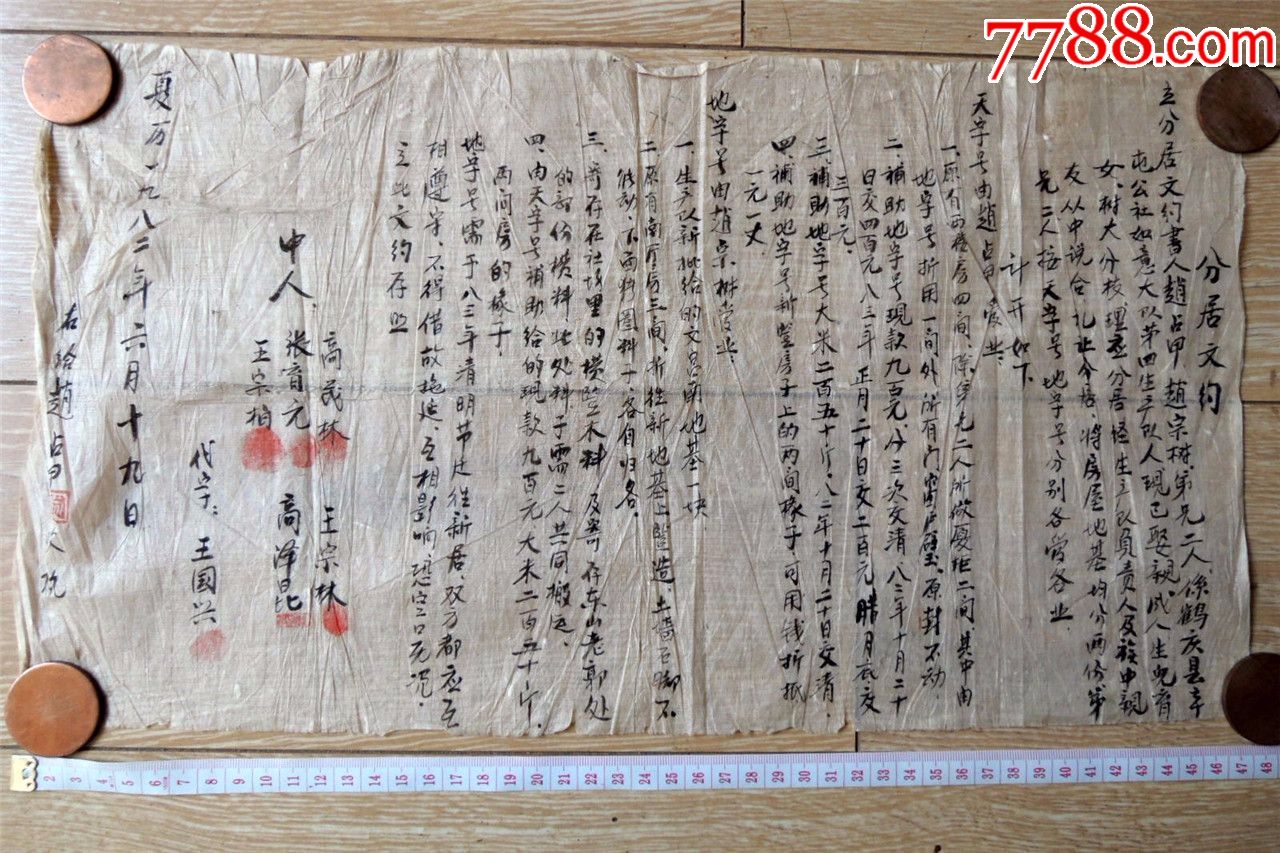 7788.com
分居文约
立分居文约书人趙占甲 趙宗树弟兄二人,係鶴庆县辛
屯公社如意大队第四生产队人现已娶親,成人生兒育
女,树大分枝,理应分居经生产队負责人及族中親
友从中说合礼让分居,将房屋地基均分两份弟
兄二人按天字号地字号分别各管各业,
计开如下
天字号由趙占甲受业:
一、原有西楼房四间,除弟兄二人所做厦柜二间其中由
地字号折用一间外所有门窗户壁,原封不动,
二、補助地字号现款九百元,分三次交清八二年十月二十
日交四百元八三年正月二十日交二百元腊月底交
三百元,
三、補助地字号大米二百五十斤:八二年十月二十日交清,
四、補助地字号新竖房子上的两间椽子可用钱折抵
一元一丈
地字号由趙宗树受业:
一、生产队新批给的文昌南地基一块,
二、原有南厅房三间,折往新地基上竖造,土墙石脚不
能动,下两料图料子各自归各。
三、寄存在社坊里的横竖木料及寄存东山老郭处
的部份横料此处料子需二人共同搬运、
四、由天字号補助给的现款九百元大米二百五十斤,
两间房的椽子,
地字号需于八三年清明节迁往新居,双方都应互
相遵守,不得借故拖延,互相影响,恐空口无凭,
立此文约存照
高茂林 王宗林
中人、张育元 高泽昆
王宗柏
代字:王国兴
夏历一九八二年六月十九日
右给趙占甲 文	执
2 3 4 5 6 7 8 9 10 11 12 13 14 15 16 17 18 19 20 21 22 23 24 25 26 27 28 29 30 31 32 33 34 35 36 37 38 39 40 41 42 43 44 45 46 47 48